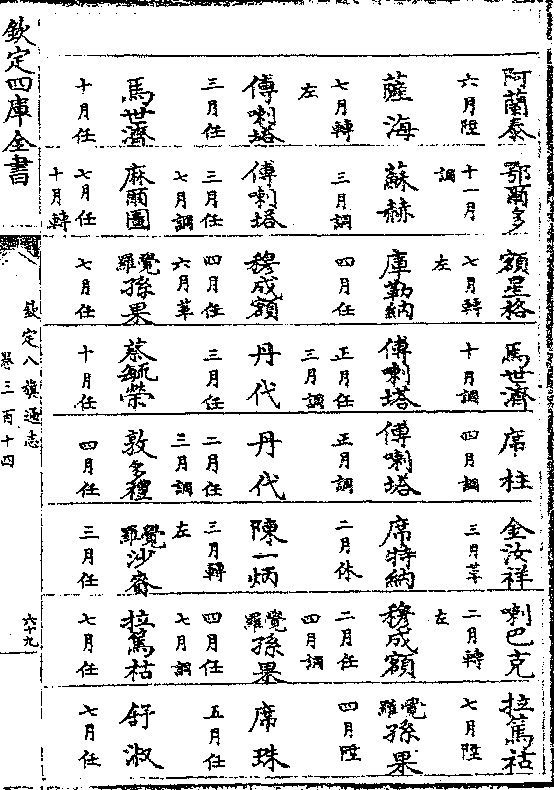 阿蘭泰
六月陞
薩海
七月轉
左
傅喇塔
三月任
馬世濟
十月任
鄂爾多
十一月
調
蘇赫
三月調
傅喇塔
三月任
七月調
麻爾圖
七月任
十月轉
額星格
七月轉
左
庫勒納
四月任
穆成額
四月任
六月革
覺羅孫果
七月任
馬世濟
十月調
傅喇塔
正月任
三月調
丹代
三月任
蔡毓榮
十月任
席柱
四月調
傅喇塔
正月調
丹代
二月任
三月調
敦多禮
四月任
金汝祥
三月革
席特納
二月休
陳一炳
三月轉
左
覺羅沙賚
三月任
喇巴克
二月轉
左
穆成額
二月任
四月調
覺羅孫果
四月任
七月調
拉篤祜
七月任
拉篤祜
七月陞
覺羅孫果
四月陞
席珠
五月任
舒淑
七月任
欽定四庫全書
欽定八旗通志
卷三百十四
六十九